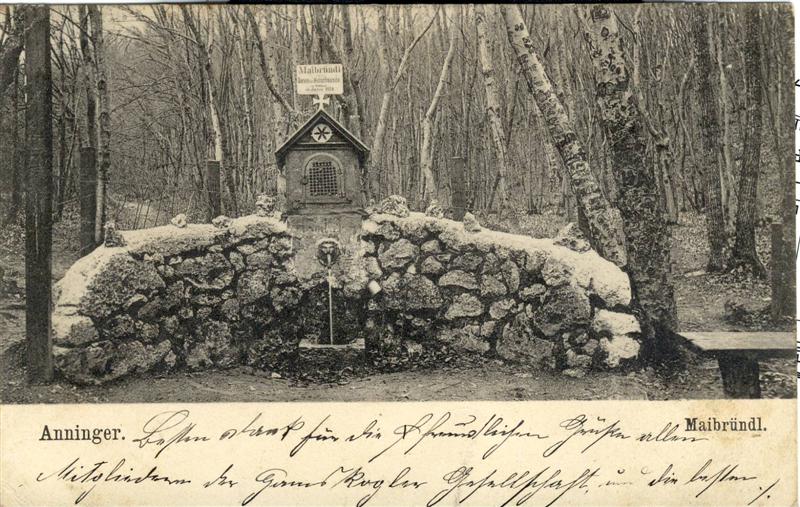 Maibründl
Anninger.
Maibründl.
Besten Dank für die freundlichen Grüße allen
Mitgliedern der Gamskogler Gesellschaft, und die besten ./.